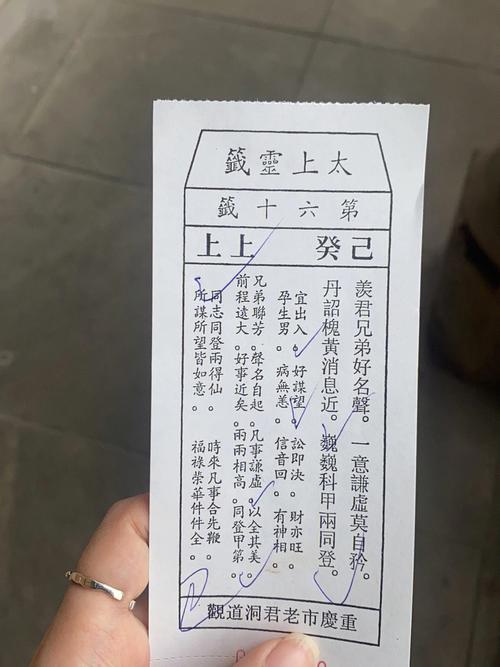 太上靈籤
第六十籤
己癸 上上
羨君兄弟好名聲。一意謙虛莫自矜。
丹詔槐黃消息近。巍巍科甲兩同登。
宜出入。好謀望。訟即決。財亦旺。
孕生男。病無恙。信音回。有神相。
兄弟聯芳。聲名自起。凡事謙虛。以全其美。
前程遠大。好事近矣。兩兩相高。同登甲第。
同志同登兩得仙 時來凡事合先鞭
所謀所望皆如意。福祿榮華件件全。
重慶市老君洞道觀